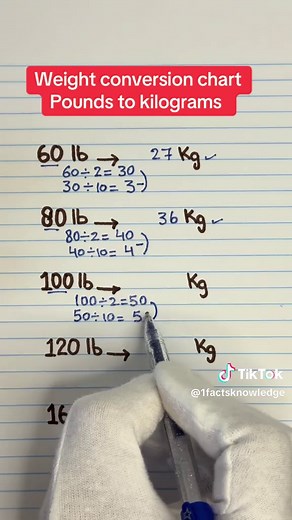 Weight conversion chart
Pounds to kilograms
60 lb → 27 Kg ✓
60÷2=30
30÷10=3-)
80 lb → 36 Kg ✓
80÷2=40
40÷10=4-)
100 lb → Kg
100÷2=50
50÷10=5-)
120 lb → Kg
TikTok
@1factsknowledge
16